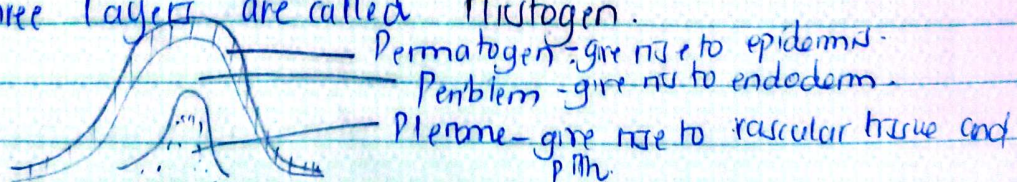 ree layers are called Histogen.
Dermatogen - give rise to epidermis.
Periblem - give rise to endoderm.
Plerome - give rise to vascular tissue and
pith.